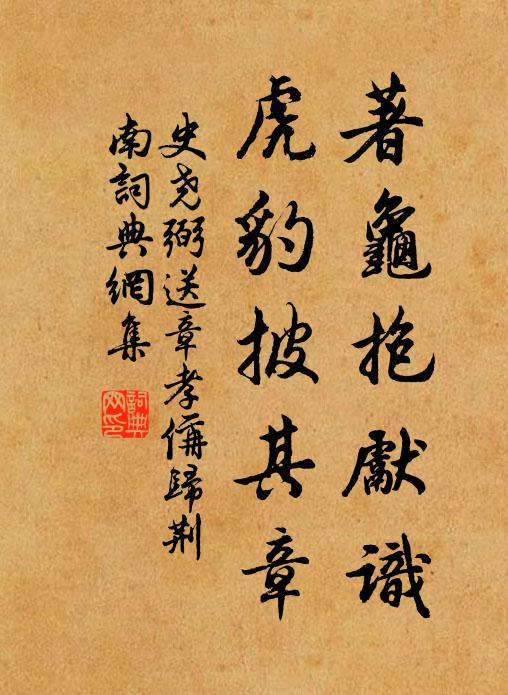 著龜抱獻識
虎豹披其章
史尧弼送章孝倄歸荆
南詞典網集
詞典
网印